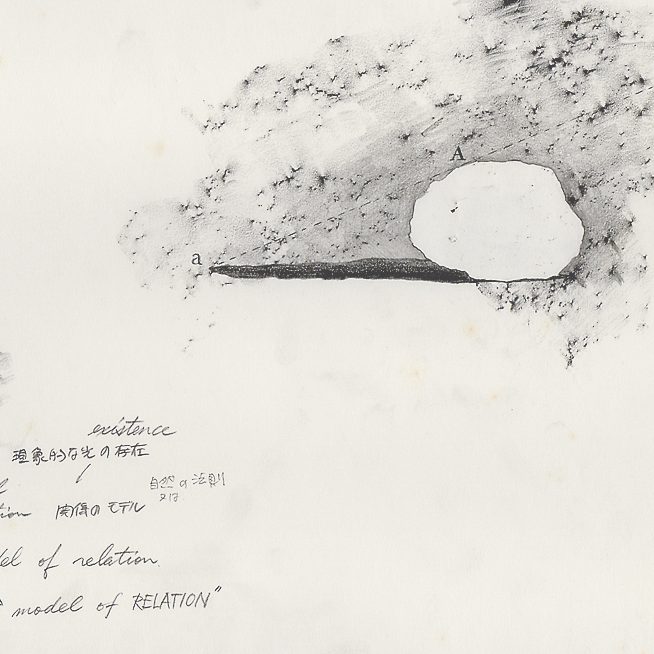 A
a
existence
現象的な光の存在
自然の法則
又は
関係のモデル
of relation
model of RELATION"